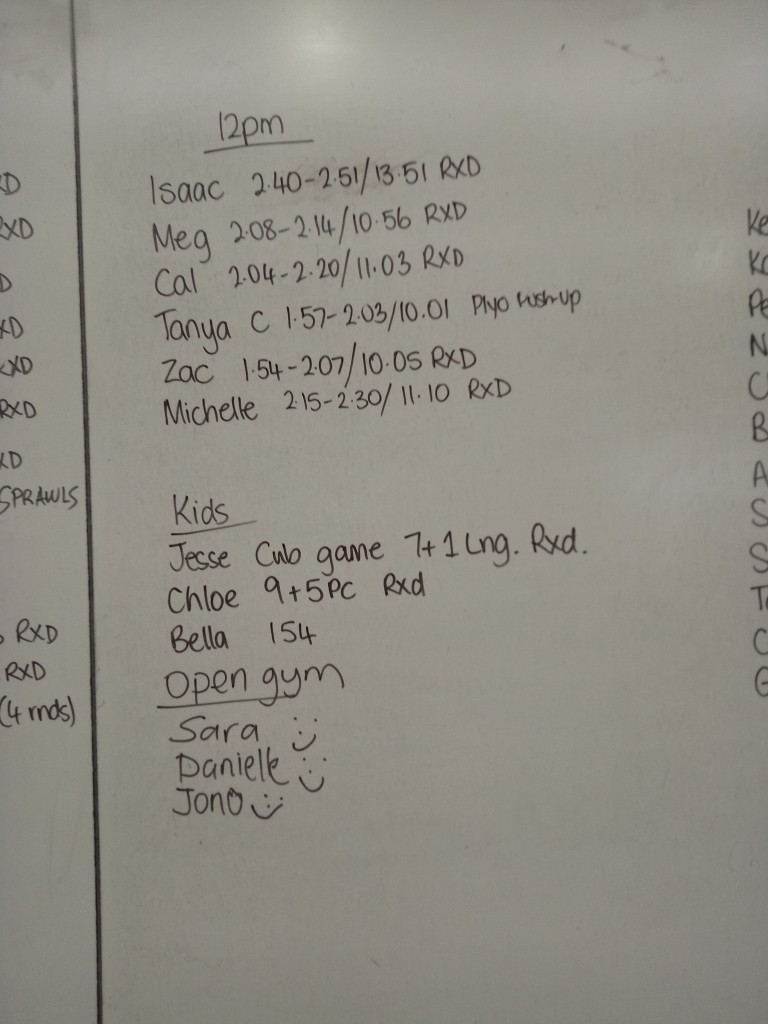 12pm
Isaac 2.40-2.51/13.51 RXD
Meg 2.08-2.14/10.56 RXD
Cal 2.04-2.20/11.03 RXD
Tanya C 1.57-2.03/10.01 Plyo Push-up
Zac 1.54-2.07/10.05 RXD
Michelle 2.15-2.30/11.10 RXD
Kids
Jesse Cub game 7+1 Lng. Rxd.
Chloe 9+5PC Rxd
Bella 154
Open gym
Sara
Danielle
Jono
SPRAWLS
RXD
RXD
(4 rnds)